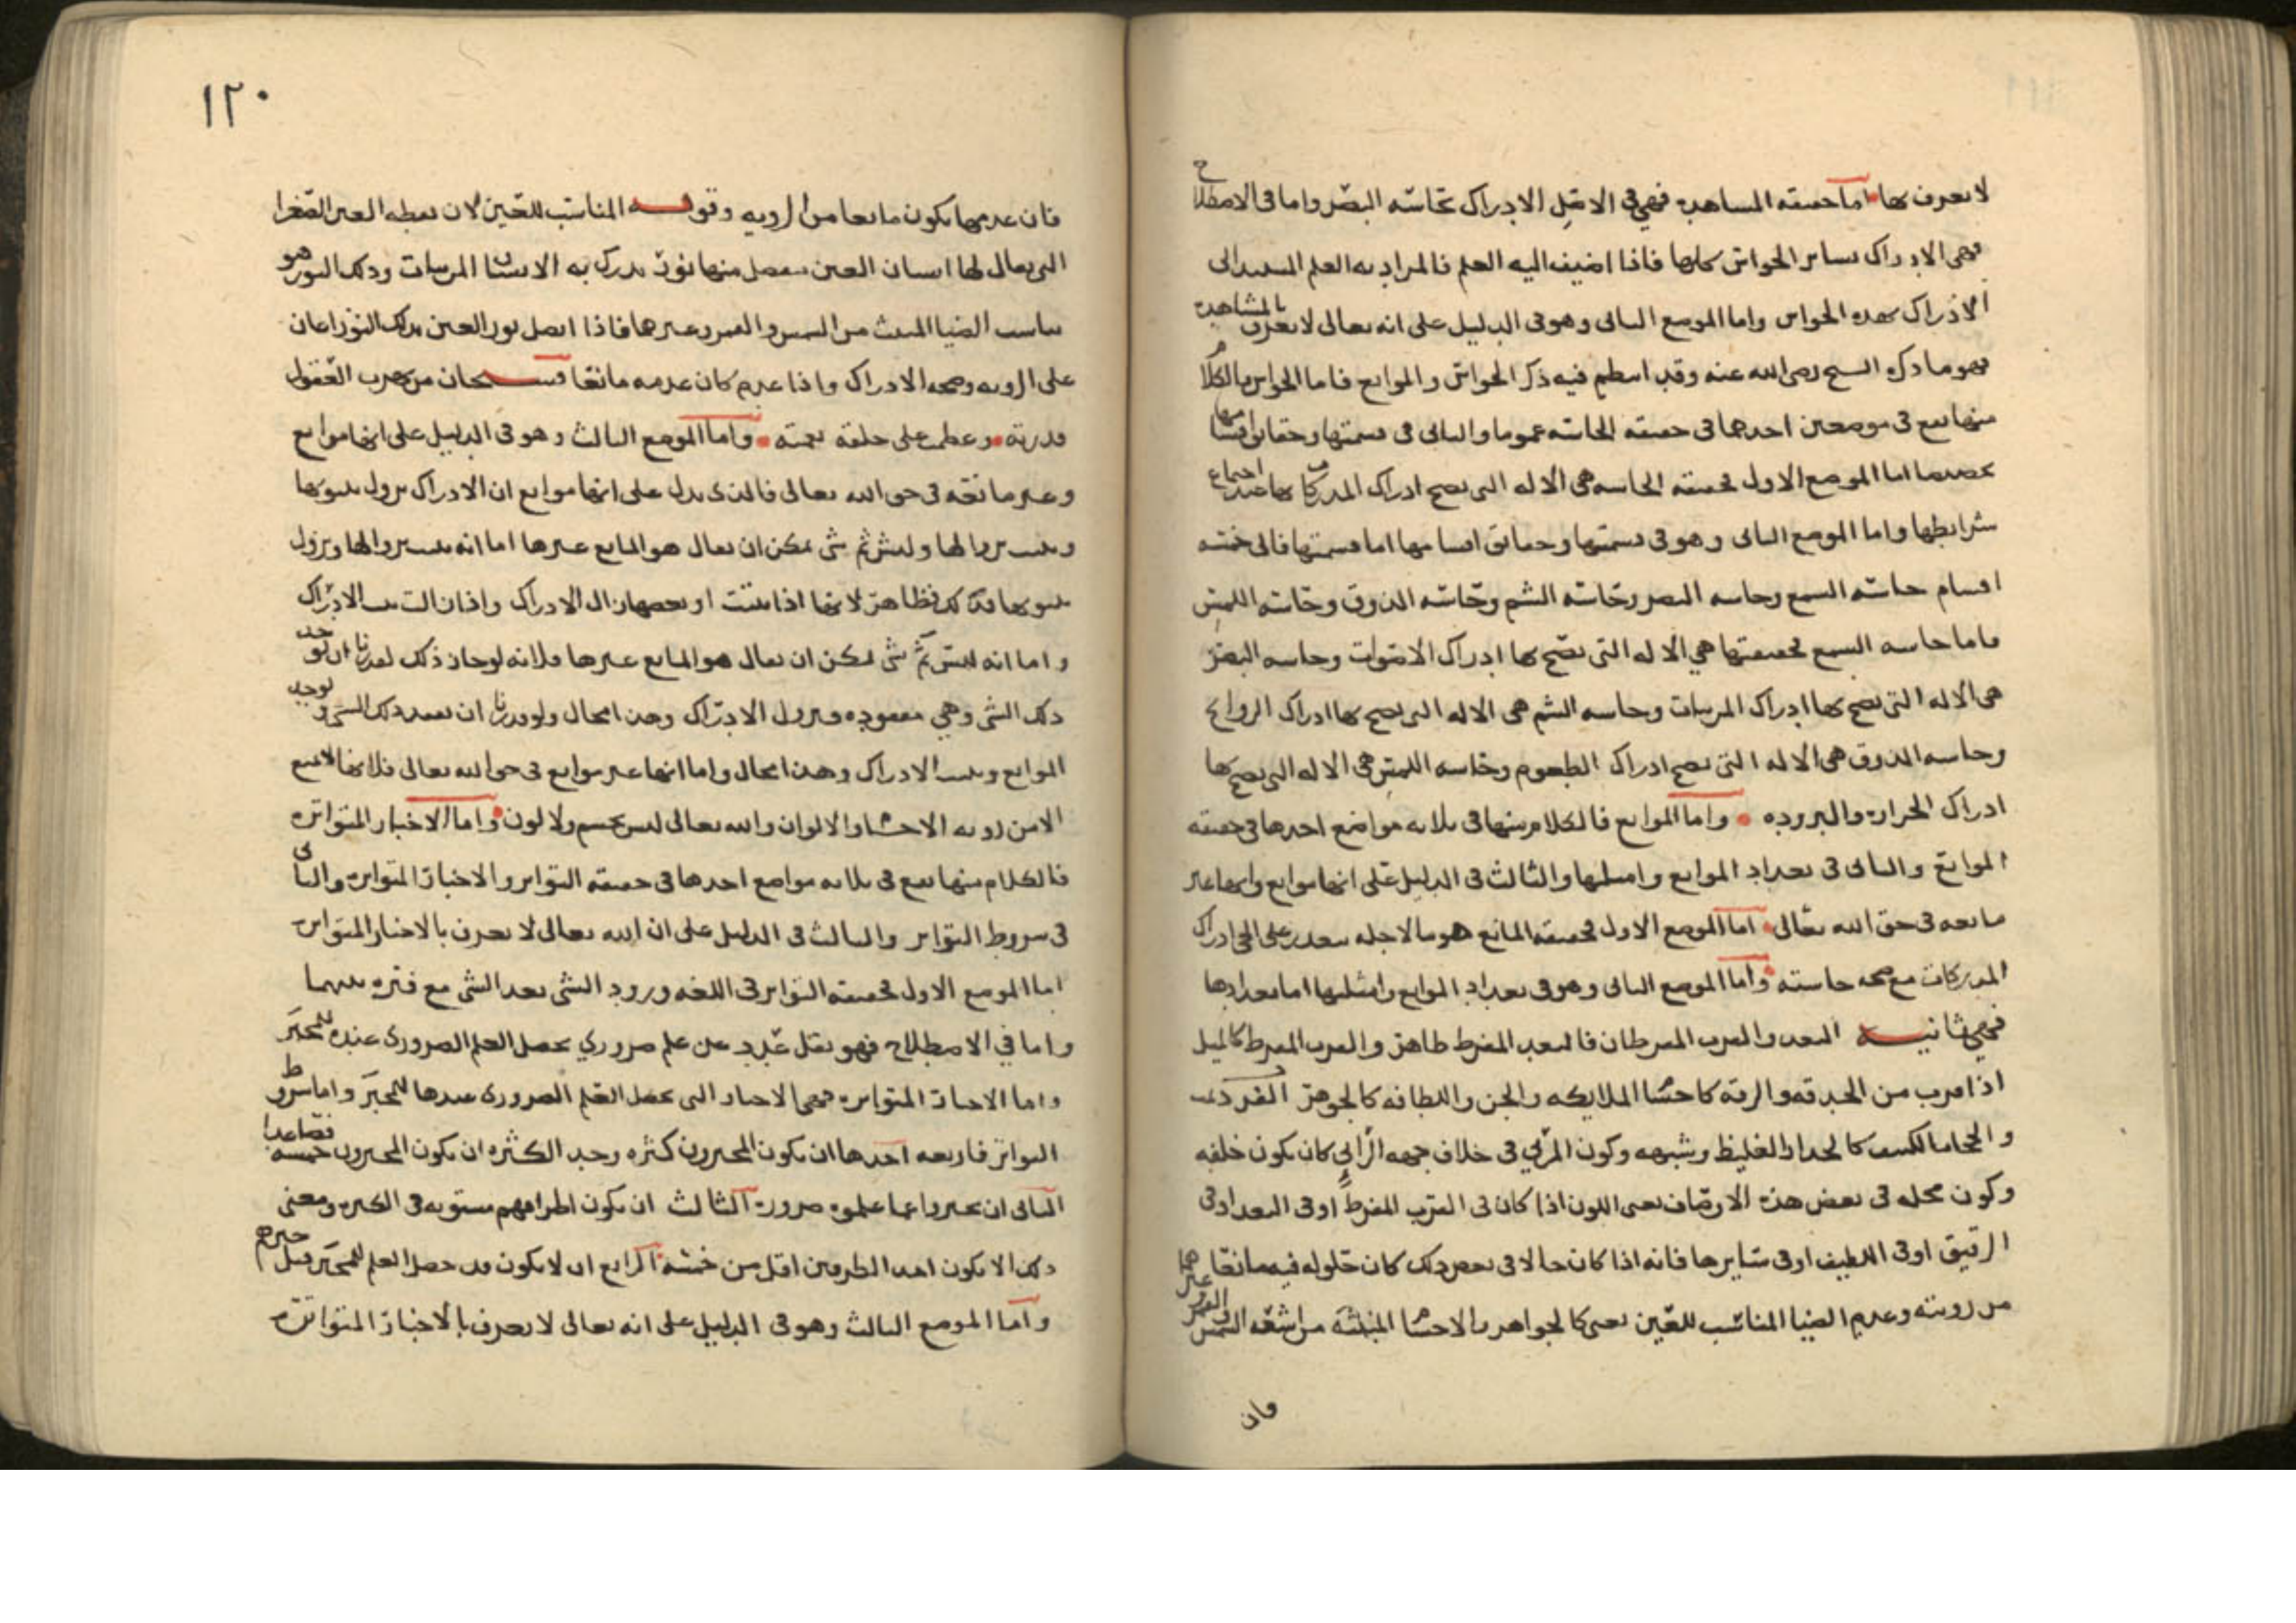 لا يعرف بها اما حقيقه المشاهده فهي في الاصل الادراك بحاسه البصر واما في الاصطلاح
فهي الادراك بساير الحواس كلها فاذا اضيف اليه العلم فالمراد به العلم المستند الى
الادراك بهذه الحواس واما الموضع الثاني وهو في الدليل على انه تعالى لا يعرف بالمشاهده
فهو ما ذكره الشيخ رضي الله عنه وقد انتظم فيه ذكر الحواس والموانع فاما الحواس فالكلام
منها يقع في موضعين احدهما في حقيقه الحاسه عموما والثاني في قسمتها وحقايق اقسامها
اما الموضع الاول فحقيقه الحاسه هي الاله التي يصح ادراك المدركات بها عند اجتماع
شرايطها واما الموضع الثاني وهو في قسمتها وحقايق اقسامها اما قسمتها فالى خمسه
اقسام حاسه السمع وحاسه البصر وحاسه الشم وحاسه الذوق وحاسه اللمس
فاما حاسه السمع فحقيقتها هي الاله التي يصح بها ادراك الاصوات وحاسه البصر
هي الاله التي يصح بها ادراك المرييات وحاسه الشم هي الاله التي يصح بها ادراك الروايح
وحاسه الذوق هي الاله التي يصح ادراك الطعوم وحاسه اللمس هي الاله التي يصح بها
ادراك الحراره والبروده واما الموانع فالكلام منها في ثلاثه مواضع احدها في حقيقه
الموانع والثاني في تعداد الموانع وامثلتها والثالث في الدليل على انها موانع وانها غير
مانعه في حق الله تعالى اما الموضع الاول فحقيقه المانع هو ما لاجله يتعذر على الحي ادراك
المدركات مع صحه حاسته واما الموضع الثاني وهو في تعداد الموانع وامثلتها اما تعدادها
فهي ثمانيه البعد والقرب المفرطان فالبعد المفرط ظاهر والقرب المفرط كالميل
اذا قرب من الحدقه والرقه كاجسام الملايكه والجن واللطافه كالجوهر الفرد
والحجاب الكثيف كالجدار الغليظ وشبهه وكون المرئي في خلاف جهه الرائي كان يكون خلفه
وكون محله في بعض هذه الاوصاف يعني اللون اذا كان في القرب المفرط او في البعد او في
الرقيق او في اللطيف او في سايرها فانه اذا كان حالا في بعض ذلك كان حلوله فيه مانعا
من رويته وعدم الضيا المناسب للعين يعني كالجواهر والاجسام المنبثه من اشعه الشمس والقمر وغيرهما
فان
١٢٠
فان عدمها يكون مانعا من الرويه وقوله المناسب للعين لان نقطه العين الصغرا
التي يقال لها انسان العين ينفصل منها نور يدرك به الانسان المرييات وذلك النور هو
يناسب الضيا المنبث من الشمس والقمر وغيرهما فاذا اتصل نور العين بذلك النور اعان
على الرويه وصحه الادراك واذا عدم كان عدمه مانعا فسبحان من بهرت العقول
قدرته وعظمت على خلقه نعمته واما الموضع الثالث وهو في الدليل على انها موانع
وغير مانعه في حق الله تعالى فالذي يدل على انها موانع ان الادراك يزول بثبوتها
ويثبت بزوالها وليس ثم شي يمكن ان يقال هو المانع غيرها اما انه يثبت بزوالها ويزول
بثبوتها فذلك ظاهر لانها اذا ثبتت او بعضها زال الادراك واذا زالت ثبت الادراك
واما انه ليس ثم شي يمكن ان يقال هو المانع غيرها فلانه لو جاز ذلك لقدرنا ان يوجد
ذلك الشي وهي مفقوده فيزول الادراك وهذا محال ولو قدرنا ان نفقد ذلك الشي وتوجد
الموانع ويثبت الادراك وهذا محال واما انها غير موانع في حق الله تعالى فلانها لا تمنع
الا من رويه الاجسام والالوان والله تعالى ليس بجسم ولا لون واما الاخبار المتواتره
فالكلام منها يقع في ثلاثه مواضع احدها في حقيقه التواتر والاخبار المتواتره والثاني
في شروط التواتر والثالث في الدليل على ان الله تعالى لا يعرف بالاخبار المتواتره
اما الموضع الاول فحقيقه التواتر في اللغه ورود الشي بعد الشي مع فتره بينهما
واما في الاصطلاح فهو نقل عدد عن علم ضروري يحصل العلم الضروري عنده للمخبر
واما الاخبار المتواتره فهي الاخبار التي يحصل العلم الضروري عندها للمخبر واما شروط
التواتر فاربعه احدها ان يكون المخبرون كثره وحد الكثره ان يكون المخبرون خمسه فصاعدا
الثاني ان يخبروا عما علموه ضروره الثالث ان يكون اطرافهم مستويه في الكثره ومعنى
ذلك الا يكون احد الطرفين اقل من خمسه الرابع ان لا يكون قد حصل العلم للمخبر قبل خبرهم
واما الموضع الثالث وهو في الدليل على انه تعالى لا يعرف بالاخبار المتواتره